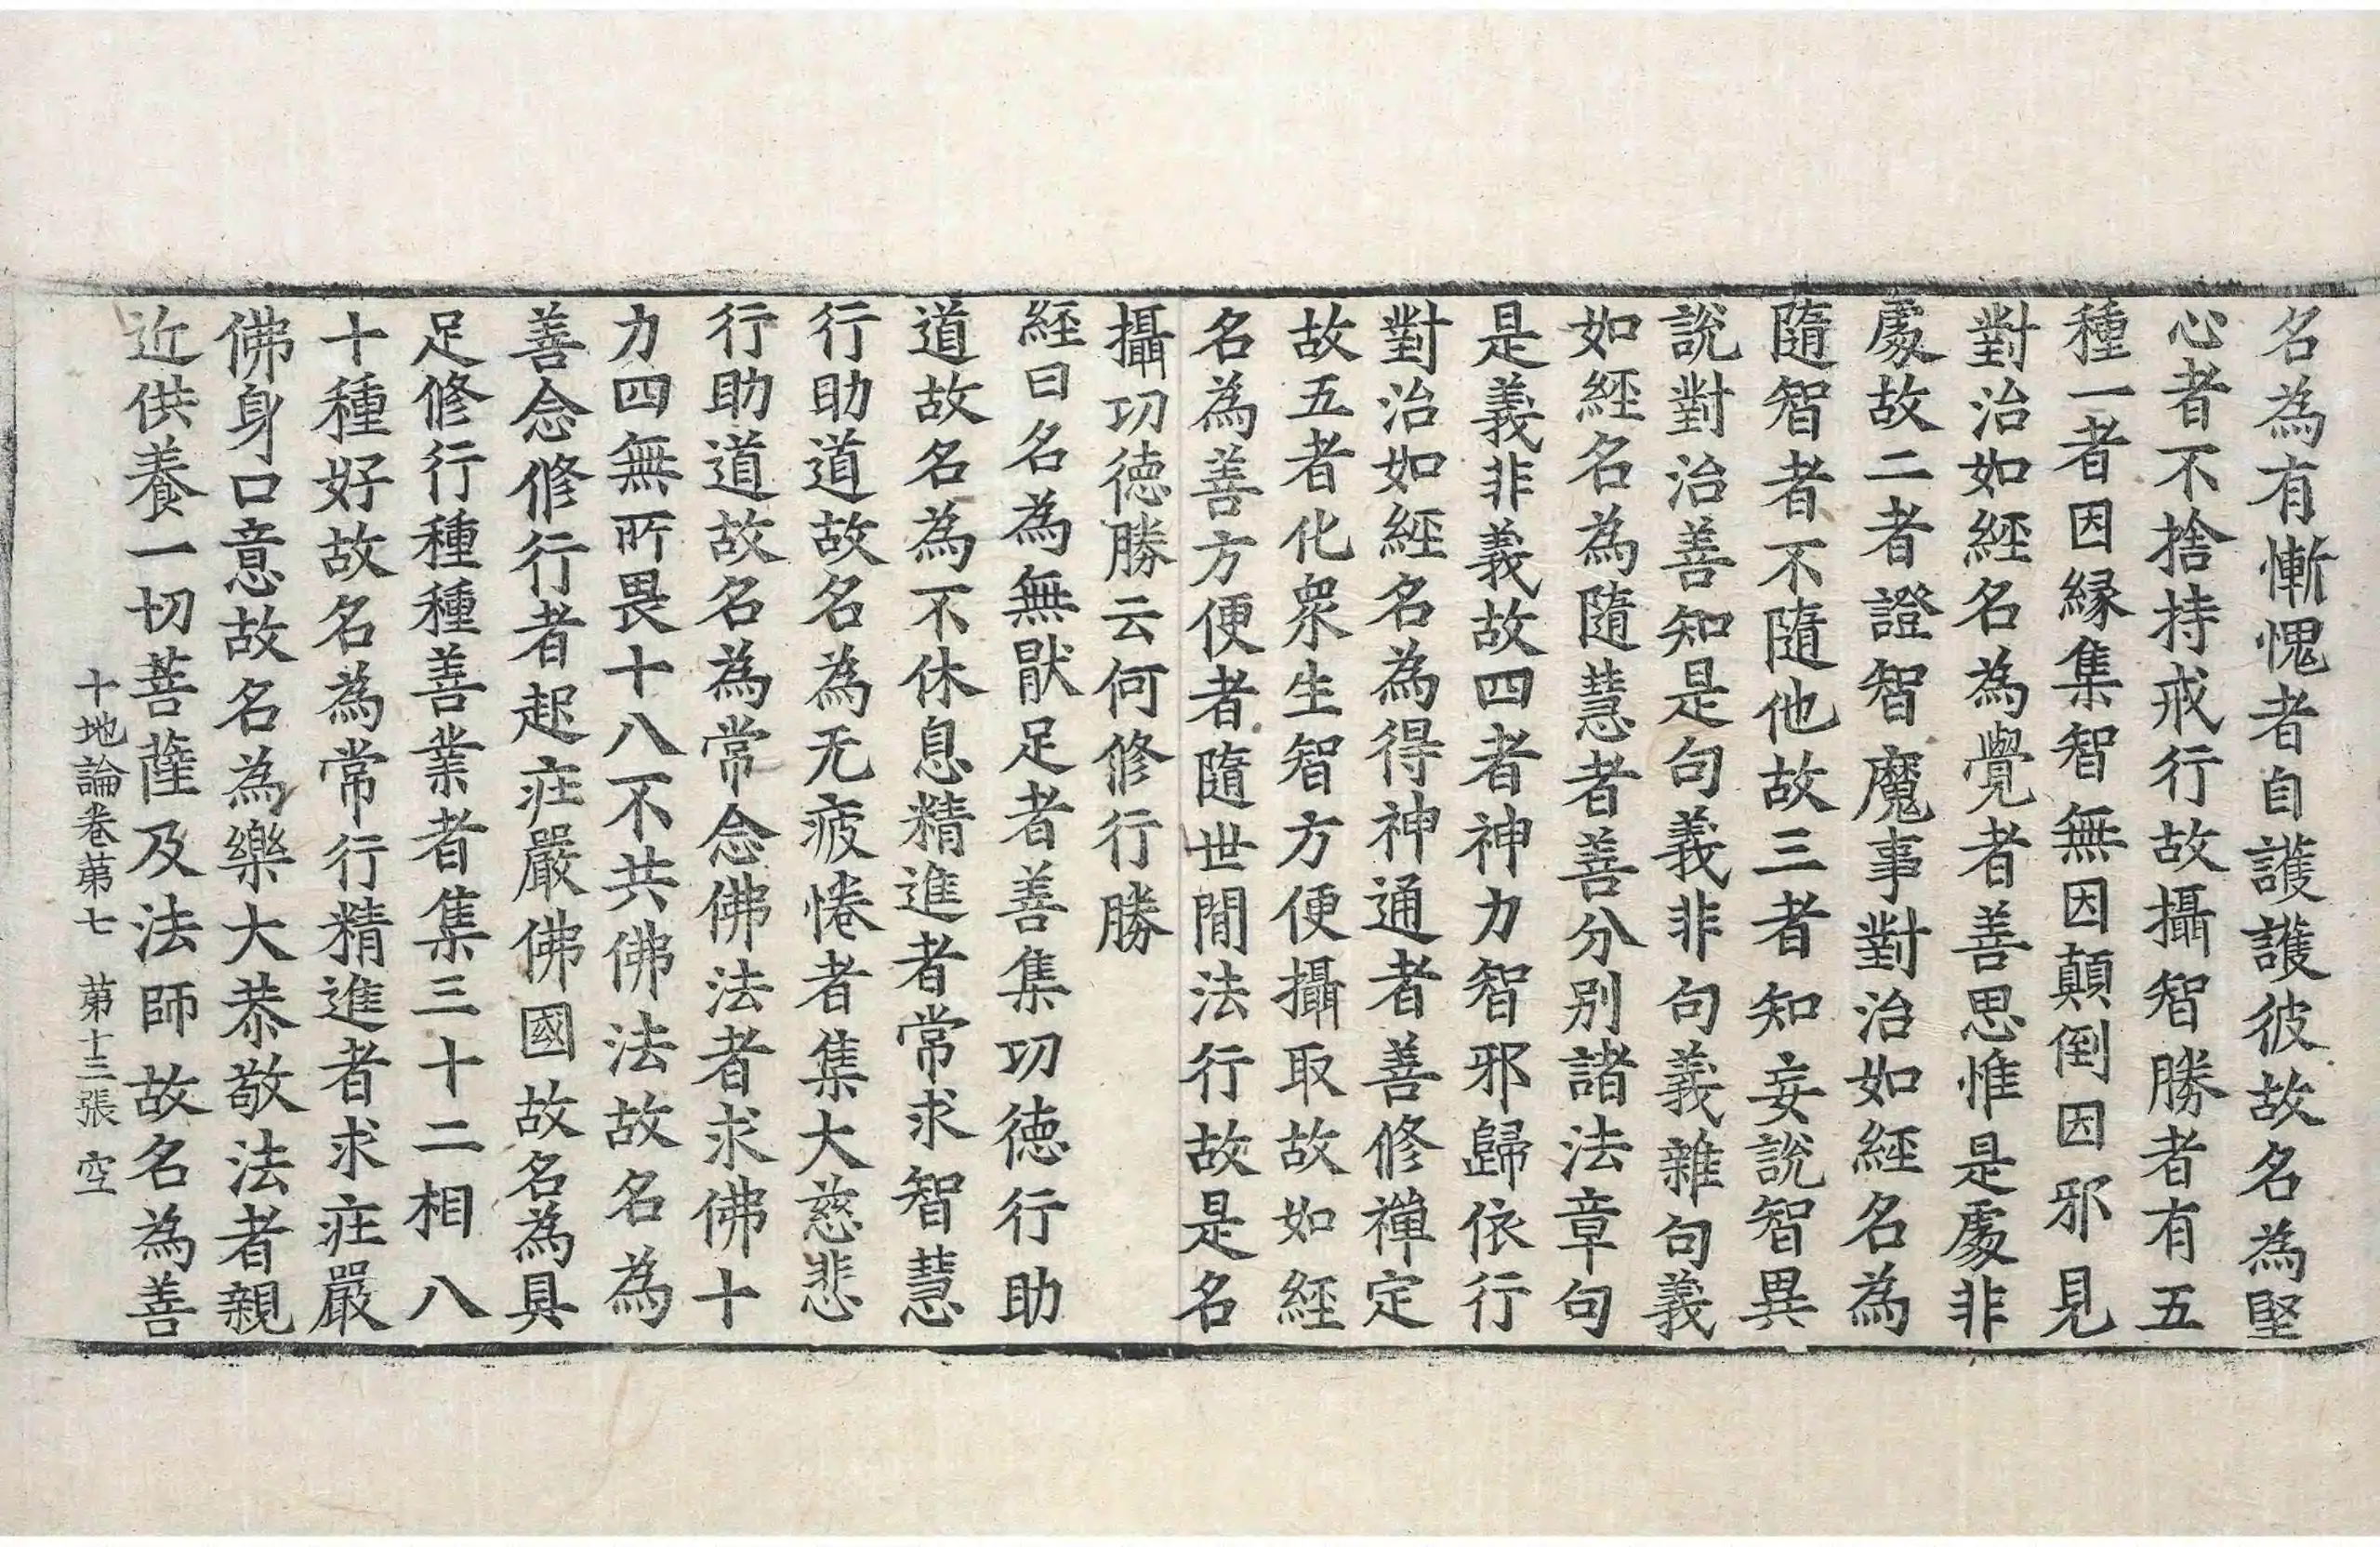 名為有慚愧者自護護彼故名為堅
心者不捨持戒行故攝智勝者有五
種一者因縁集智無因顛倒因邪見
對治如經名為覺者善思惟是處非
處故二者證智魔事對治如經名為
隨智者不隨他故三者知妄說智異
說對治善知是句義非句義雜句義
如經名為隨慧者善分別諸法章句
是義非義故四者神力智邪歸依行
對治如經名為得神通者善修禪定
故五者化衆生智方便攝取故如經
名為善方便者隨世閒法行故是名
攝功德勝云何修行勝
經曰名為無猒足者善集功德行助
道故名為不休息精進者常求智慧
行助道故名為无疲惓者集大慈悲
行助道故名為常念佛法者求佛十
力四無所畏十八不共佛法故名為
善念修行者起庄嚴佛國故名為具
足修行種種善業者集三十二相八
十種好故名為常行精進者求庄嚴
佛身口意故名為樂大恭敬法者親
近供養一切菩薩及法師故名為善
十地論卷苐七　苐十三張　空